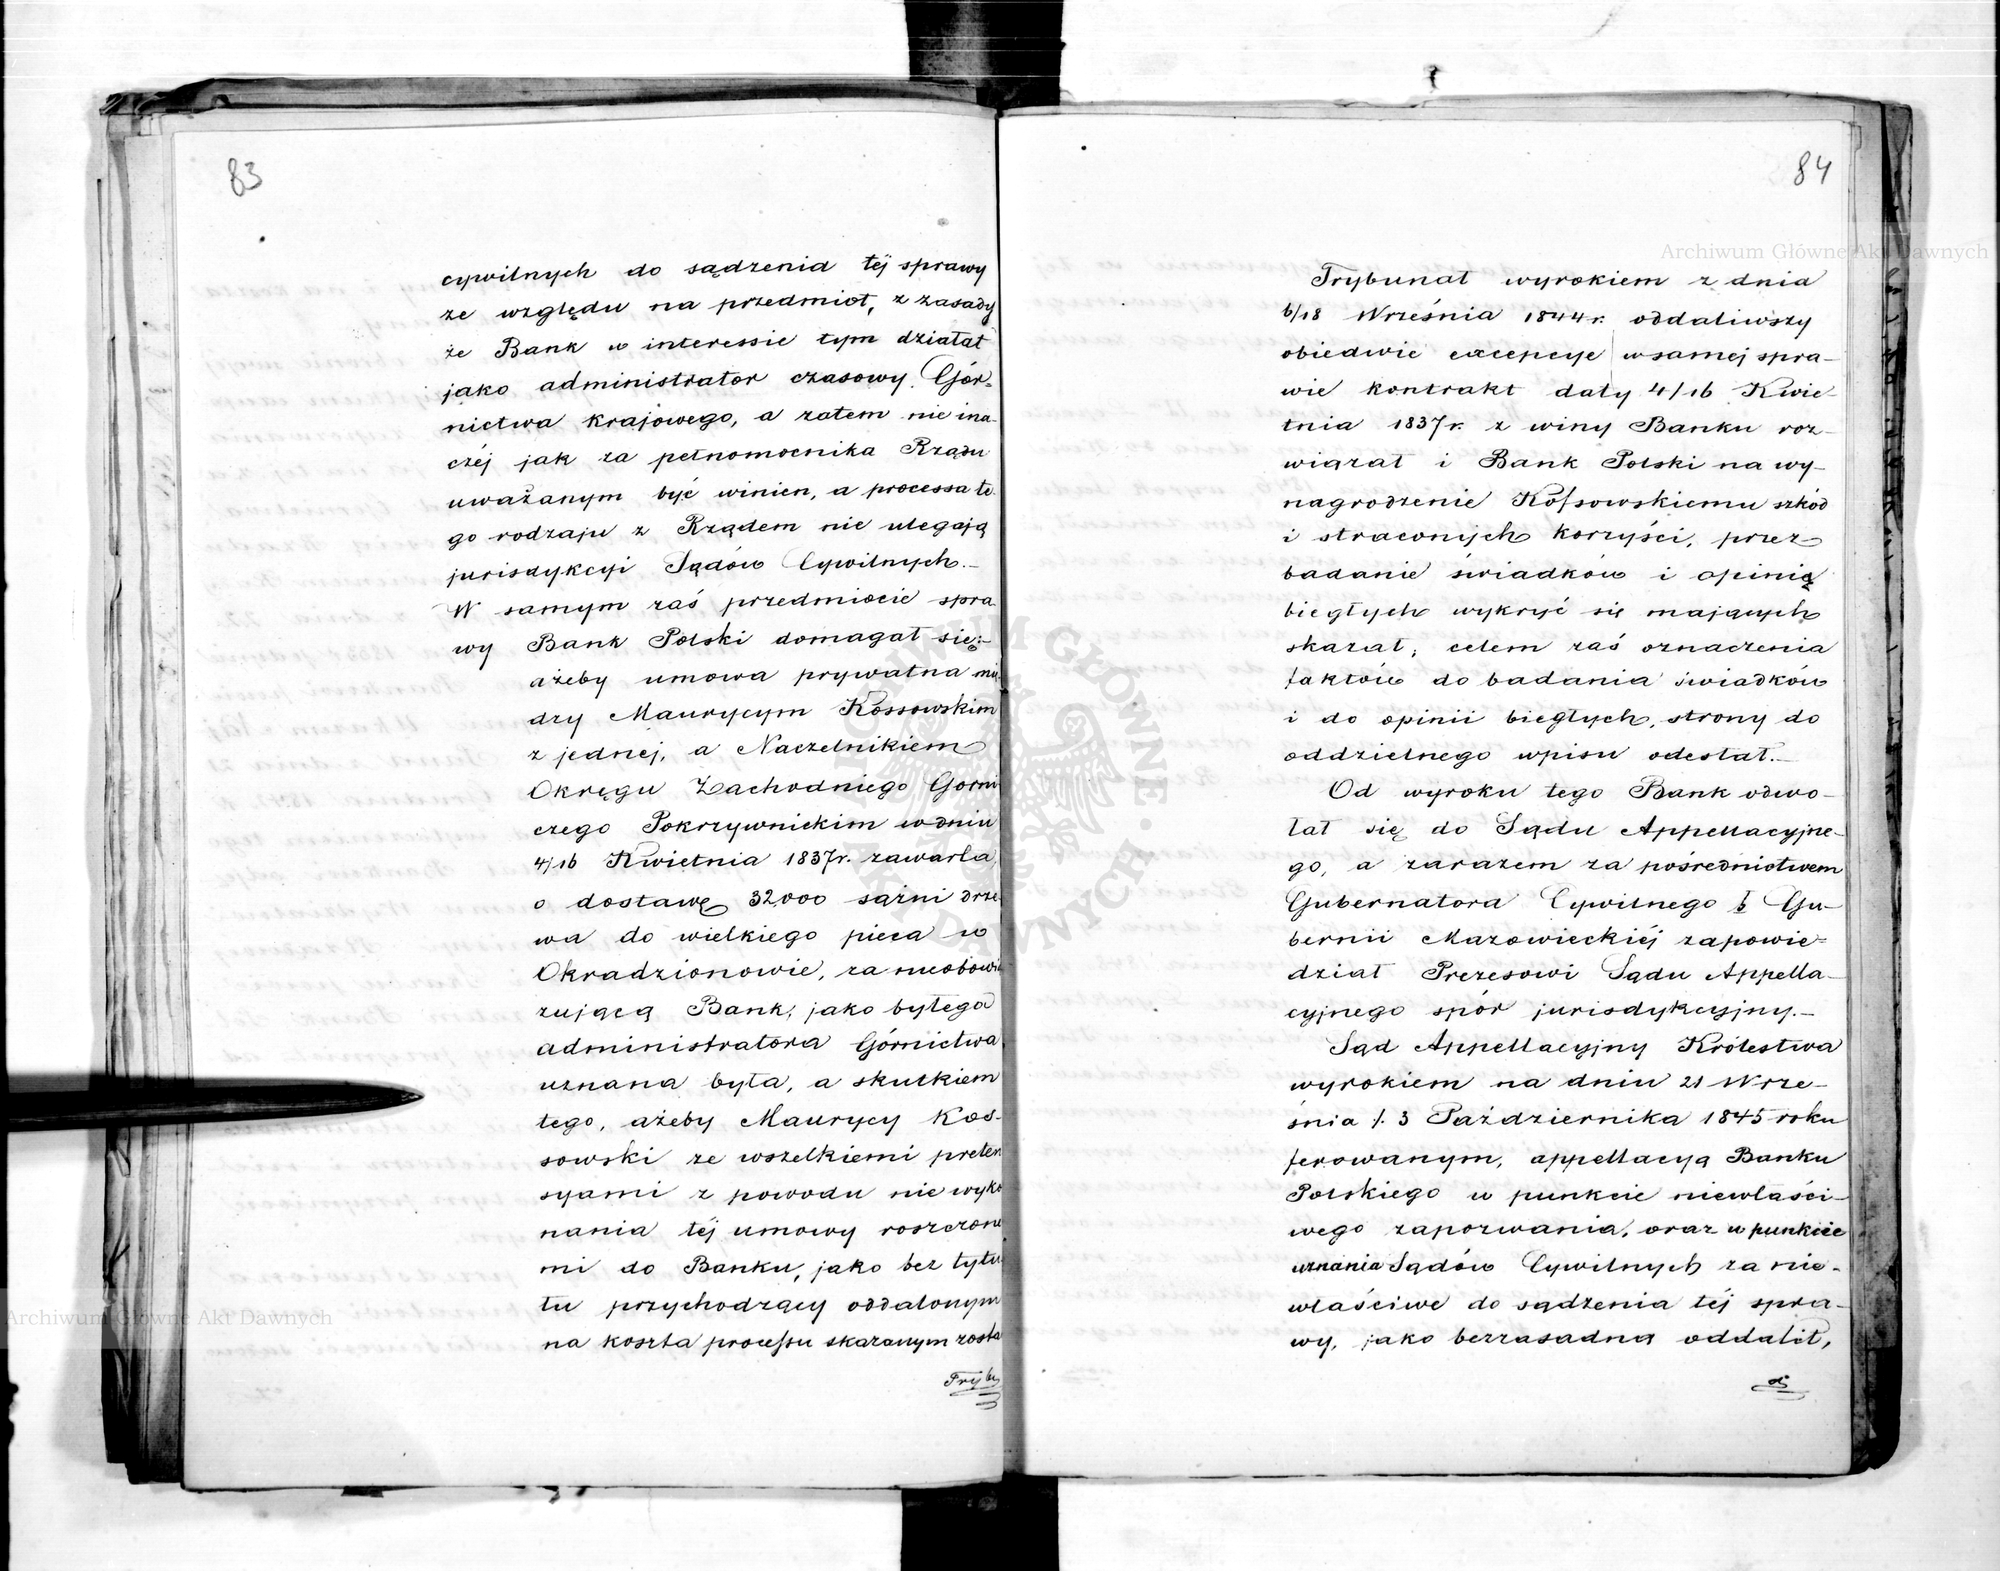 83
cywilnych do sądzenia téj sprawy
ze względu na przedmiot, z zasady
że Bank w interessie tym działał
jako administrator czasowy Gór-
nictwa krajowego, a zatem nie ina-
czéj jak za pełnomocnika Rządu
uważanym być winien, a processa te-
go rodzaju z Rządem nie ulegają
jurisdykcyi Sądów Cywilnych.-
W samym zaś przedmiocie spra
wy Bank Polski domagał się:-
ażeby umowa prywatna mię
dzy Maurycym Kossowskim
z jednéj, a Naczelnikiem
Okręgu Zachodniego Górni
czego Pokrzywnickim w dniu
4/16 Kwietnia 1837r. zawarta,
o dostawę 32000 sążni drze
wa do wielkiego pieca w
Okradzionowie, za nieobowią
zującą Bank, jako byłego
administratora Górnictwa
uznana była, a skutkiem
tego, ażeby Maurycy Kos-
sowski ze wszelkiemi preten
syami z powodu nie wyko
nania téj umowy roszczone
mi do Banku, jako bez tytu
łu przychodzący oddalonym
na koszta processu skazanym został
Trybu
84
Trybunał wyrokiem z dnia
6/18 Września 1844r. oddaliwszy
obiedwie excepcye w samej spra-
wie kontrakt daty 4/16 Kwie-
tnia 1837r. z winy Banku roz-
wiązał i Bank Polski na wy-
nagrodzenie Kossowskiemu szkód
i straconych korzyści, przez
badanie świadków i opinię
biegłych wykryć się mających
skazał; celem zaś oznaczenia
faktów do badania świadków
i do opinii biegłych, strony do
oddzielnego wpisu odesłał.-
Od wyroku tego Bank odwo-
łał się do Sądu Appellacyjne-
go, a zarazem za pośrednictwem
Gubernatora Cywilnego b Gu-
bernii Mazowieckiéj zapowie-
dział Prezesowi Sądu Appella-
cyjnego spór jurisdykcyjny.-
Sąd Appellacyjny Królestwa
wyrokiem na dniu 21 Wrze-
śnia /. 3 Października 1845 roku
ferowanym, appellacyą Banku
Polskiego w punkcie niewłaści-
wego zapozwania, oraz w punkcie
uznania Sądów Cywilnych za nie-
właściwe do sądzenia téj spra-
wy, jako bezzasadną oddalił,
Archiwum Główne Akt Dawnych
Archiwum Główne Akt Dawnych